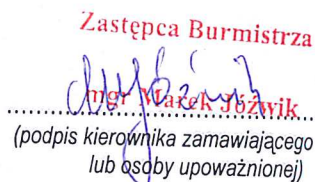 Zastępca Burmistrza
mgr Marek Jóźwik
(podpis kierownika zamawiającego
lub osoby upoważnionej)